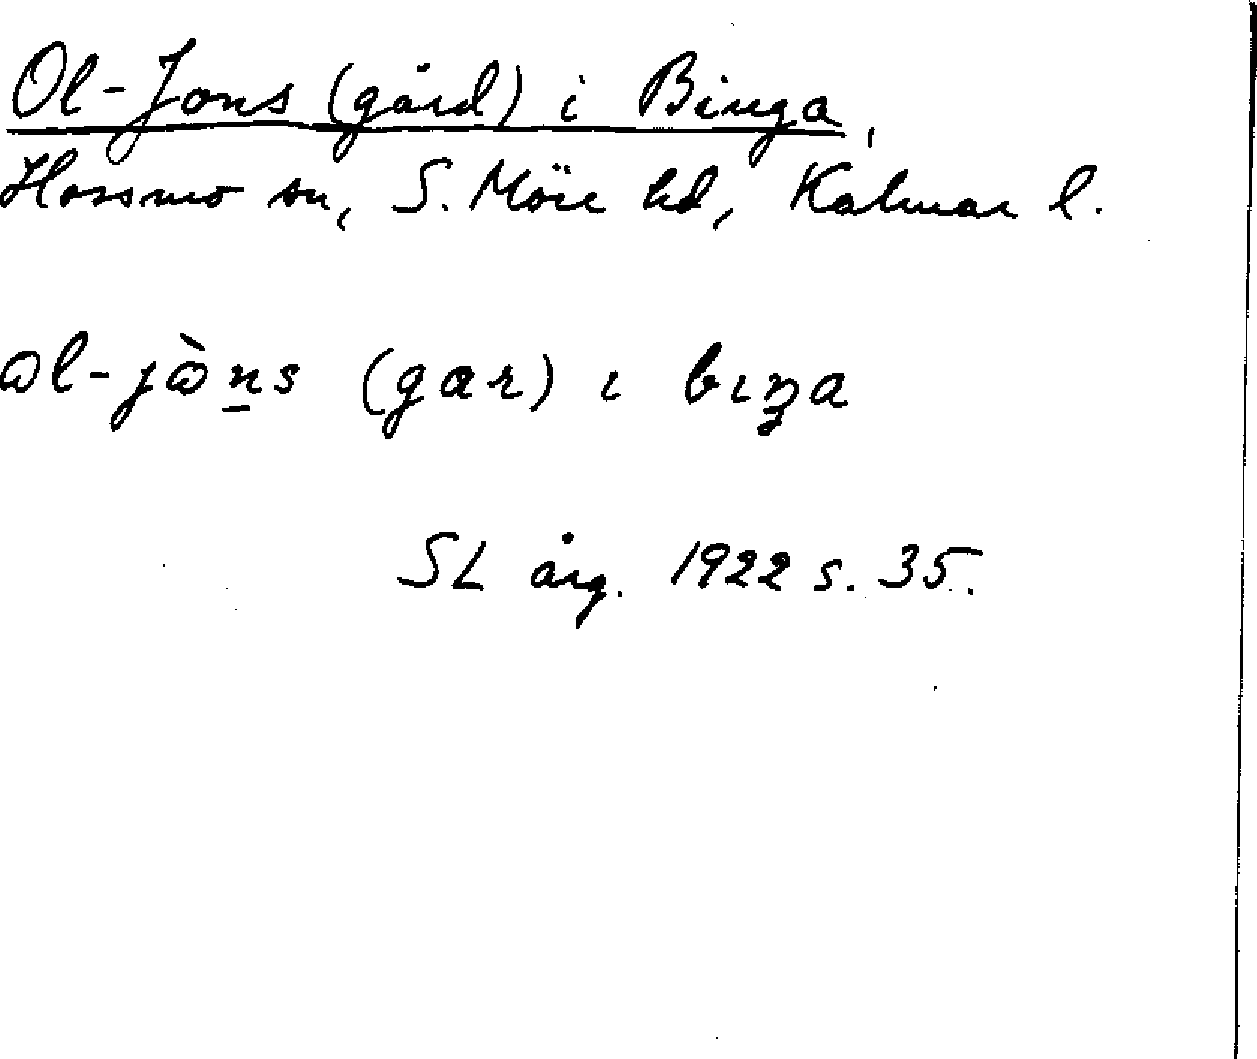 Ol-Jons (gård) i Binga,
Hossmo sn, S. Möre hd, Kalmar l.
ol-jò̱ns (gar) ı bıŋa
SL årg. 1922 s. 35.